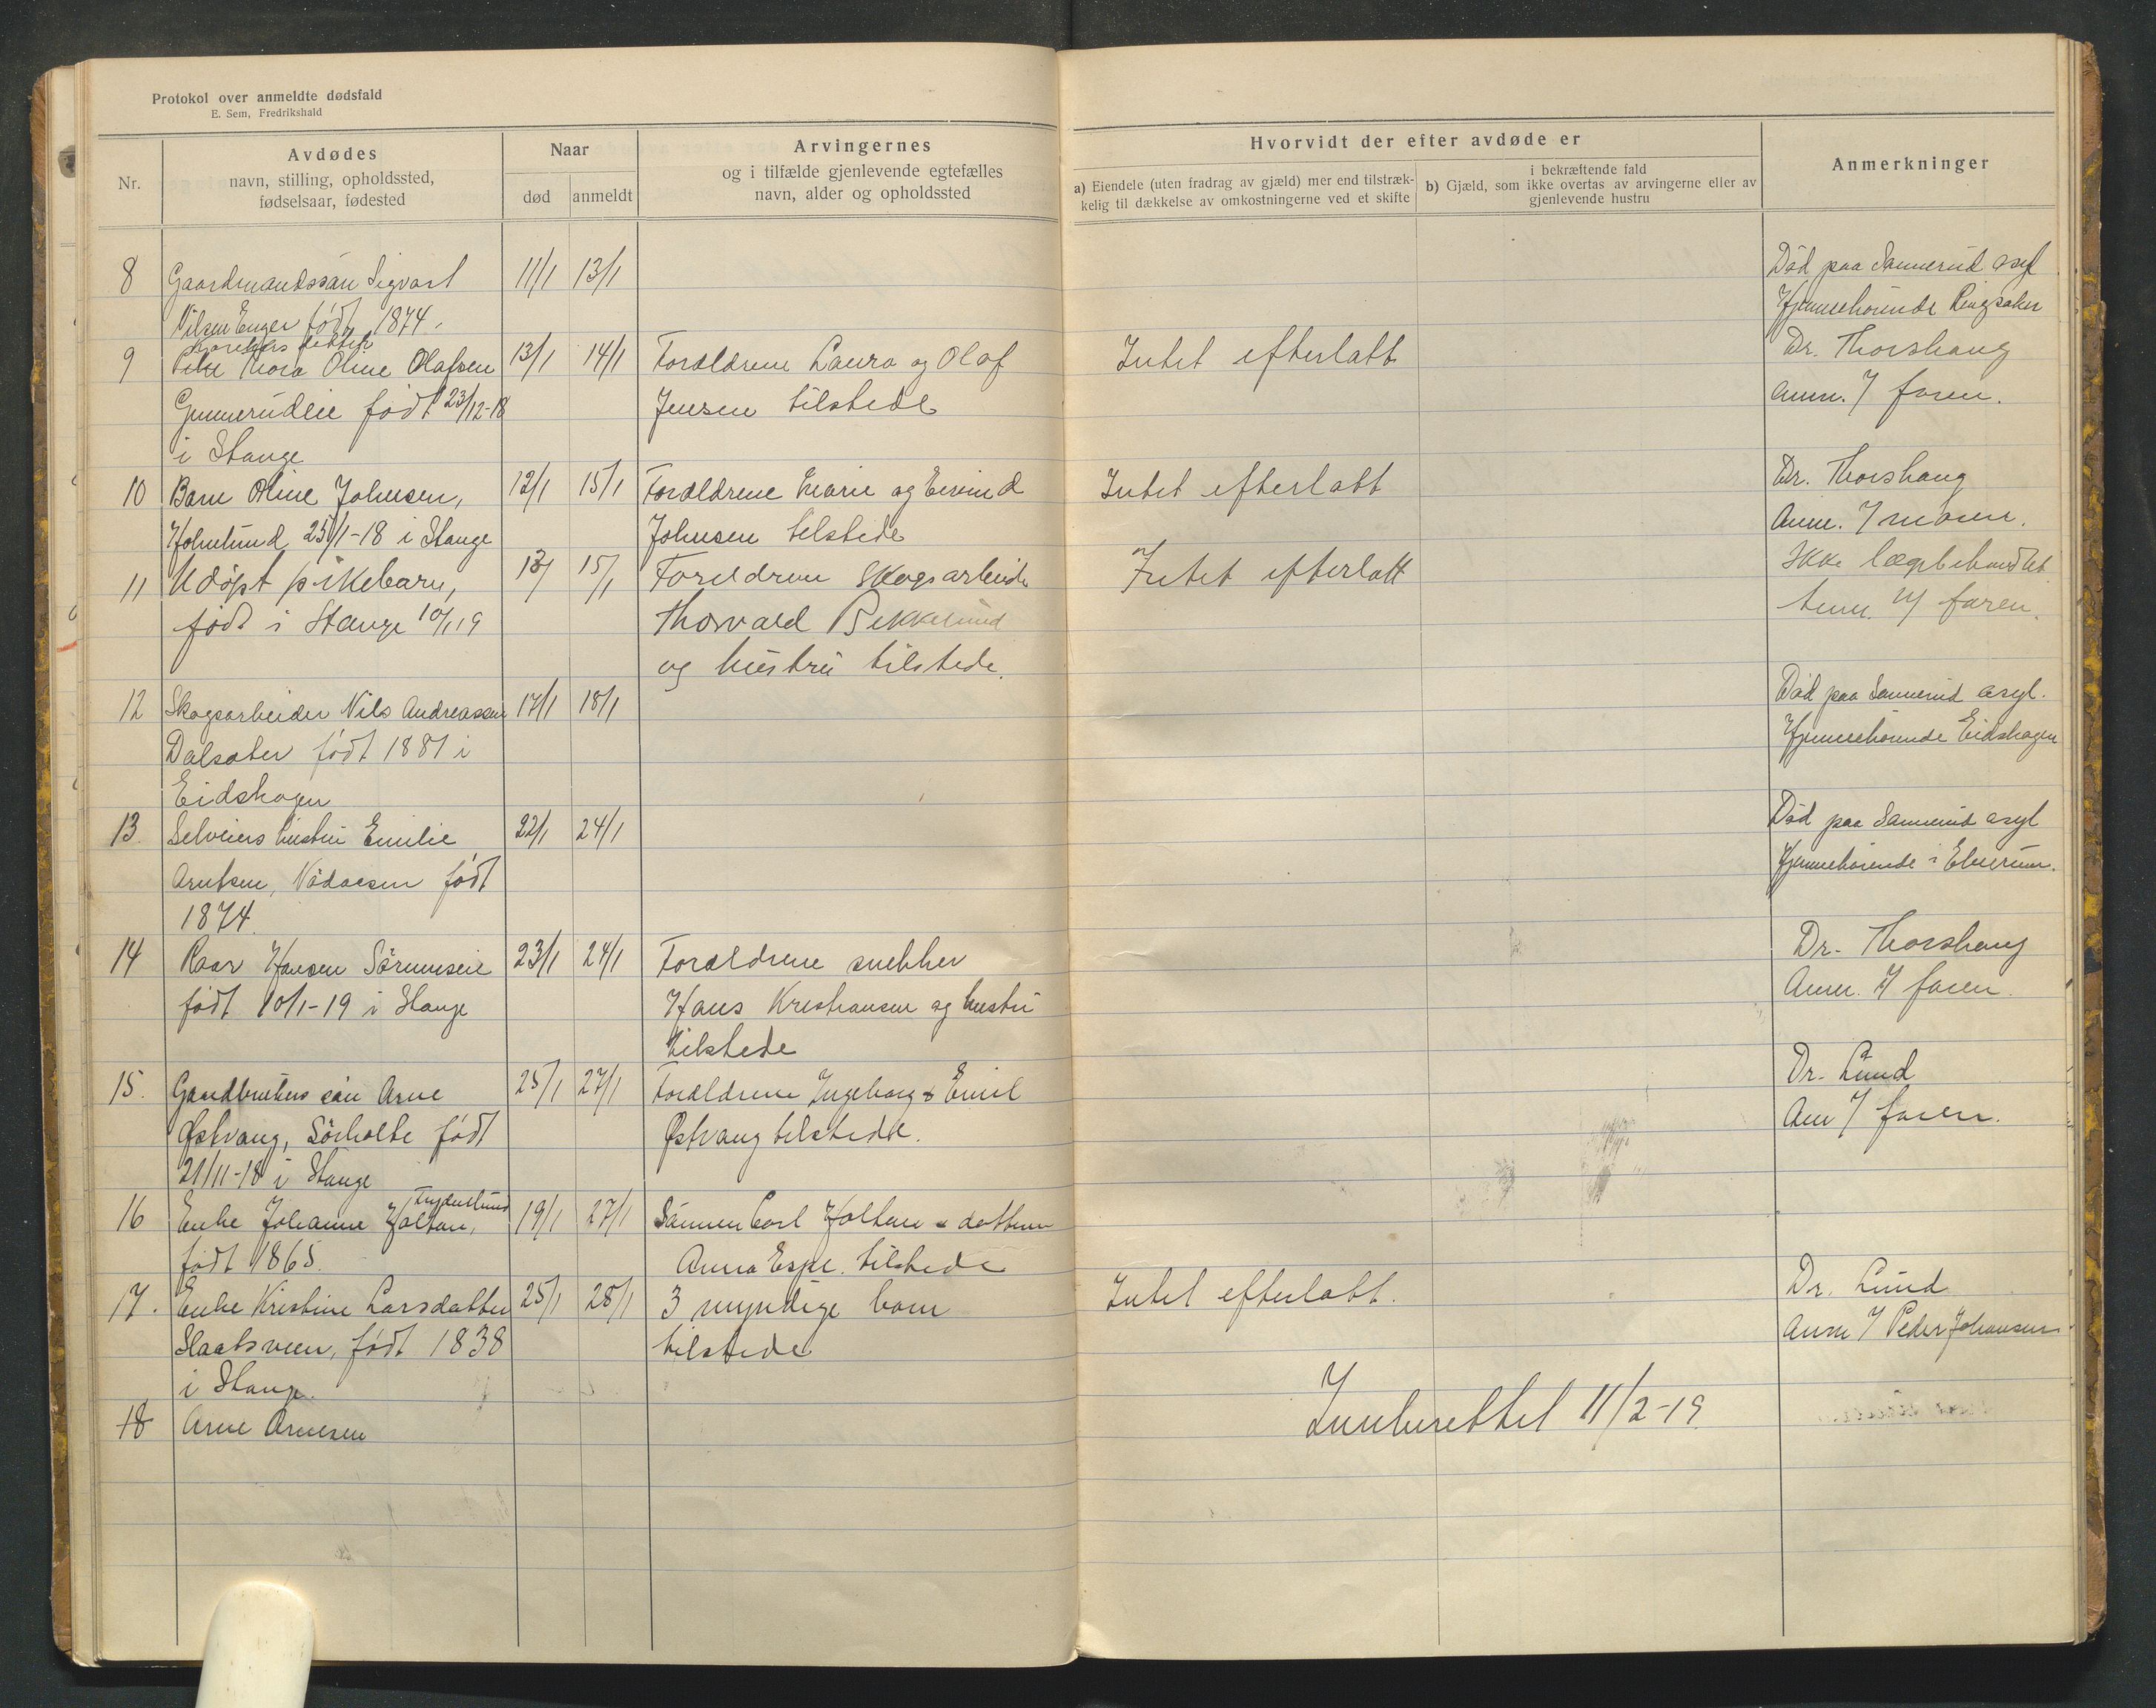 Protokol over anmeldte dødsfald
E. Sem, Fredrikshald
Nr.
Avdødes
navn, stilling, opholdssted,
fødselsaar, fødested
Naar
død
anmeldt
Arvingernes
og i tilfælde gjenlevende egtefælles
navn, alder og opholdssted
Hvorvidt der efter avdøde er
a) Eiendele (uten fradrag av gjæld) mer end tilstræk-
kelig til dækkelse av omkostningerne ved et skifte
i bekræftende fald
b) Gjæld, som ikke overtas av arvingerne eller av
gjenlevende hustru
Anmerkninger
8 Gaardmandssøn Sigvart 11/1 13/1 Død paa Sannerud asyl
Nilsen Enger født 1874. Hjemmehørende Ringsaker
datter
9 Thora Oline Olafsen 13/1 14/1 Forældrene Laura og Olaf Intet efterlatt Dr. Thorshaug
Gunnerudeie født 23/12-18 Jensen tilstede Anm. / faren.
i Stange
10 Barn Oline Johnsen, 12/1 15/1 Forældrene Marie og Eivind Intet efterlatt Dr. Thorshaug
Holmlund 25/1-18 i Stange Johnsen tilstede Anm. / moren.
11 Udøpt pikebarn, 13/1 15/1 Foreldrene Skogsarbeider Intet efterlatt Ikke lægebehandlet
født i Stange 10/1 19 Thorvald Bekkelund Anm. / faren.
og hustru tilstede.
12 Skogsarbeider Nils Andreassen 17/1 18/1 Død paa Sannerud asyl.
Dalsæter født 1881 i Hjemmehørende Eidskogen
Eidskogen
13. Selveiers hustru Emilie 22/1 24/1 Død paa Sannerud asyl
Arntsen, født Hjemmehørende i Elverum.
1874.
14 Roar Hansen Sørumseie 23/1 24/1 Forældrene snekker Dr. Thorshaug
født 10/1-19 i Stange Hans Kristiansen og hustru Anm. / faren.
tilstede
15. Gaardbrukers søn Arne 25/1 27/1 Forældrene Ingeborg & Emil Dr. Lund
Østvang, Sørholte født Østvang tilstede. Anm / faren.
21/11-18 i Stange
Frydenlund
16 Enke Johanne Holten, 19/1 27/1 Sønnen Carl Holten & datteren
født 1865. Anna Espe. tilstede
17. Enke Kristine Larsdatter 25/1 28/1 3 myndige barn Intet efterlatt. Dr. Lund
Slaatsveen, født 1838 tilstede Anm / Peder Johansen
i Stange.
18 Arne Arnesen Innberettet 11/2-19